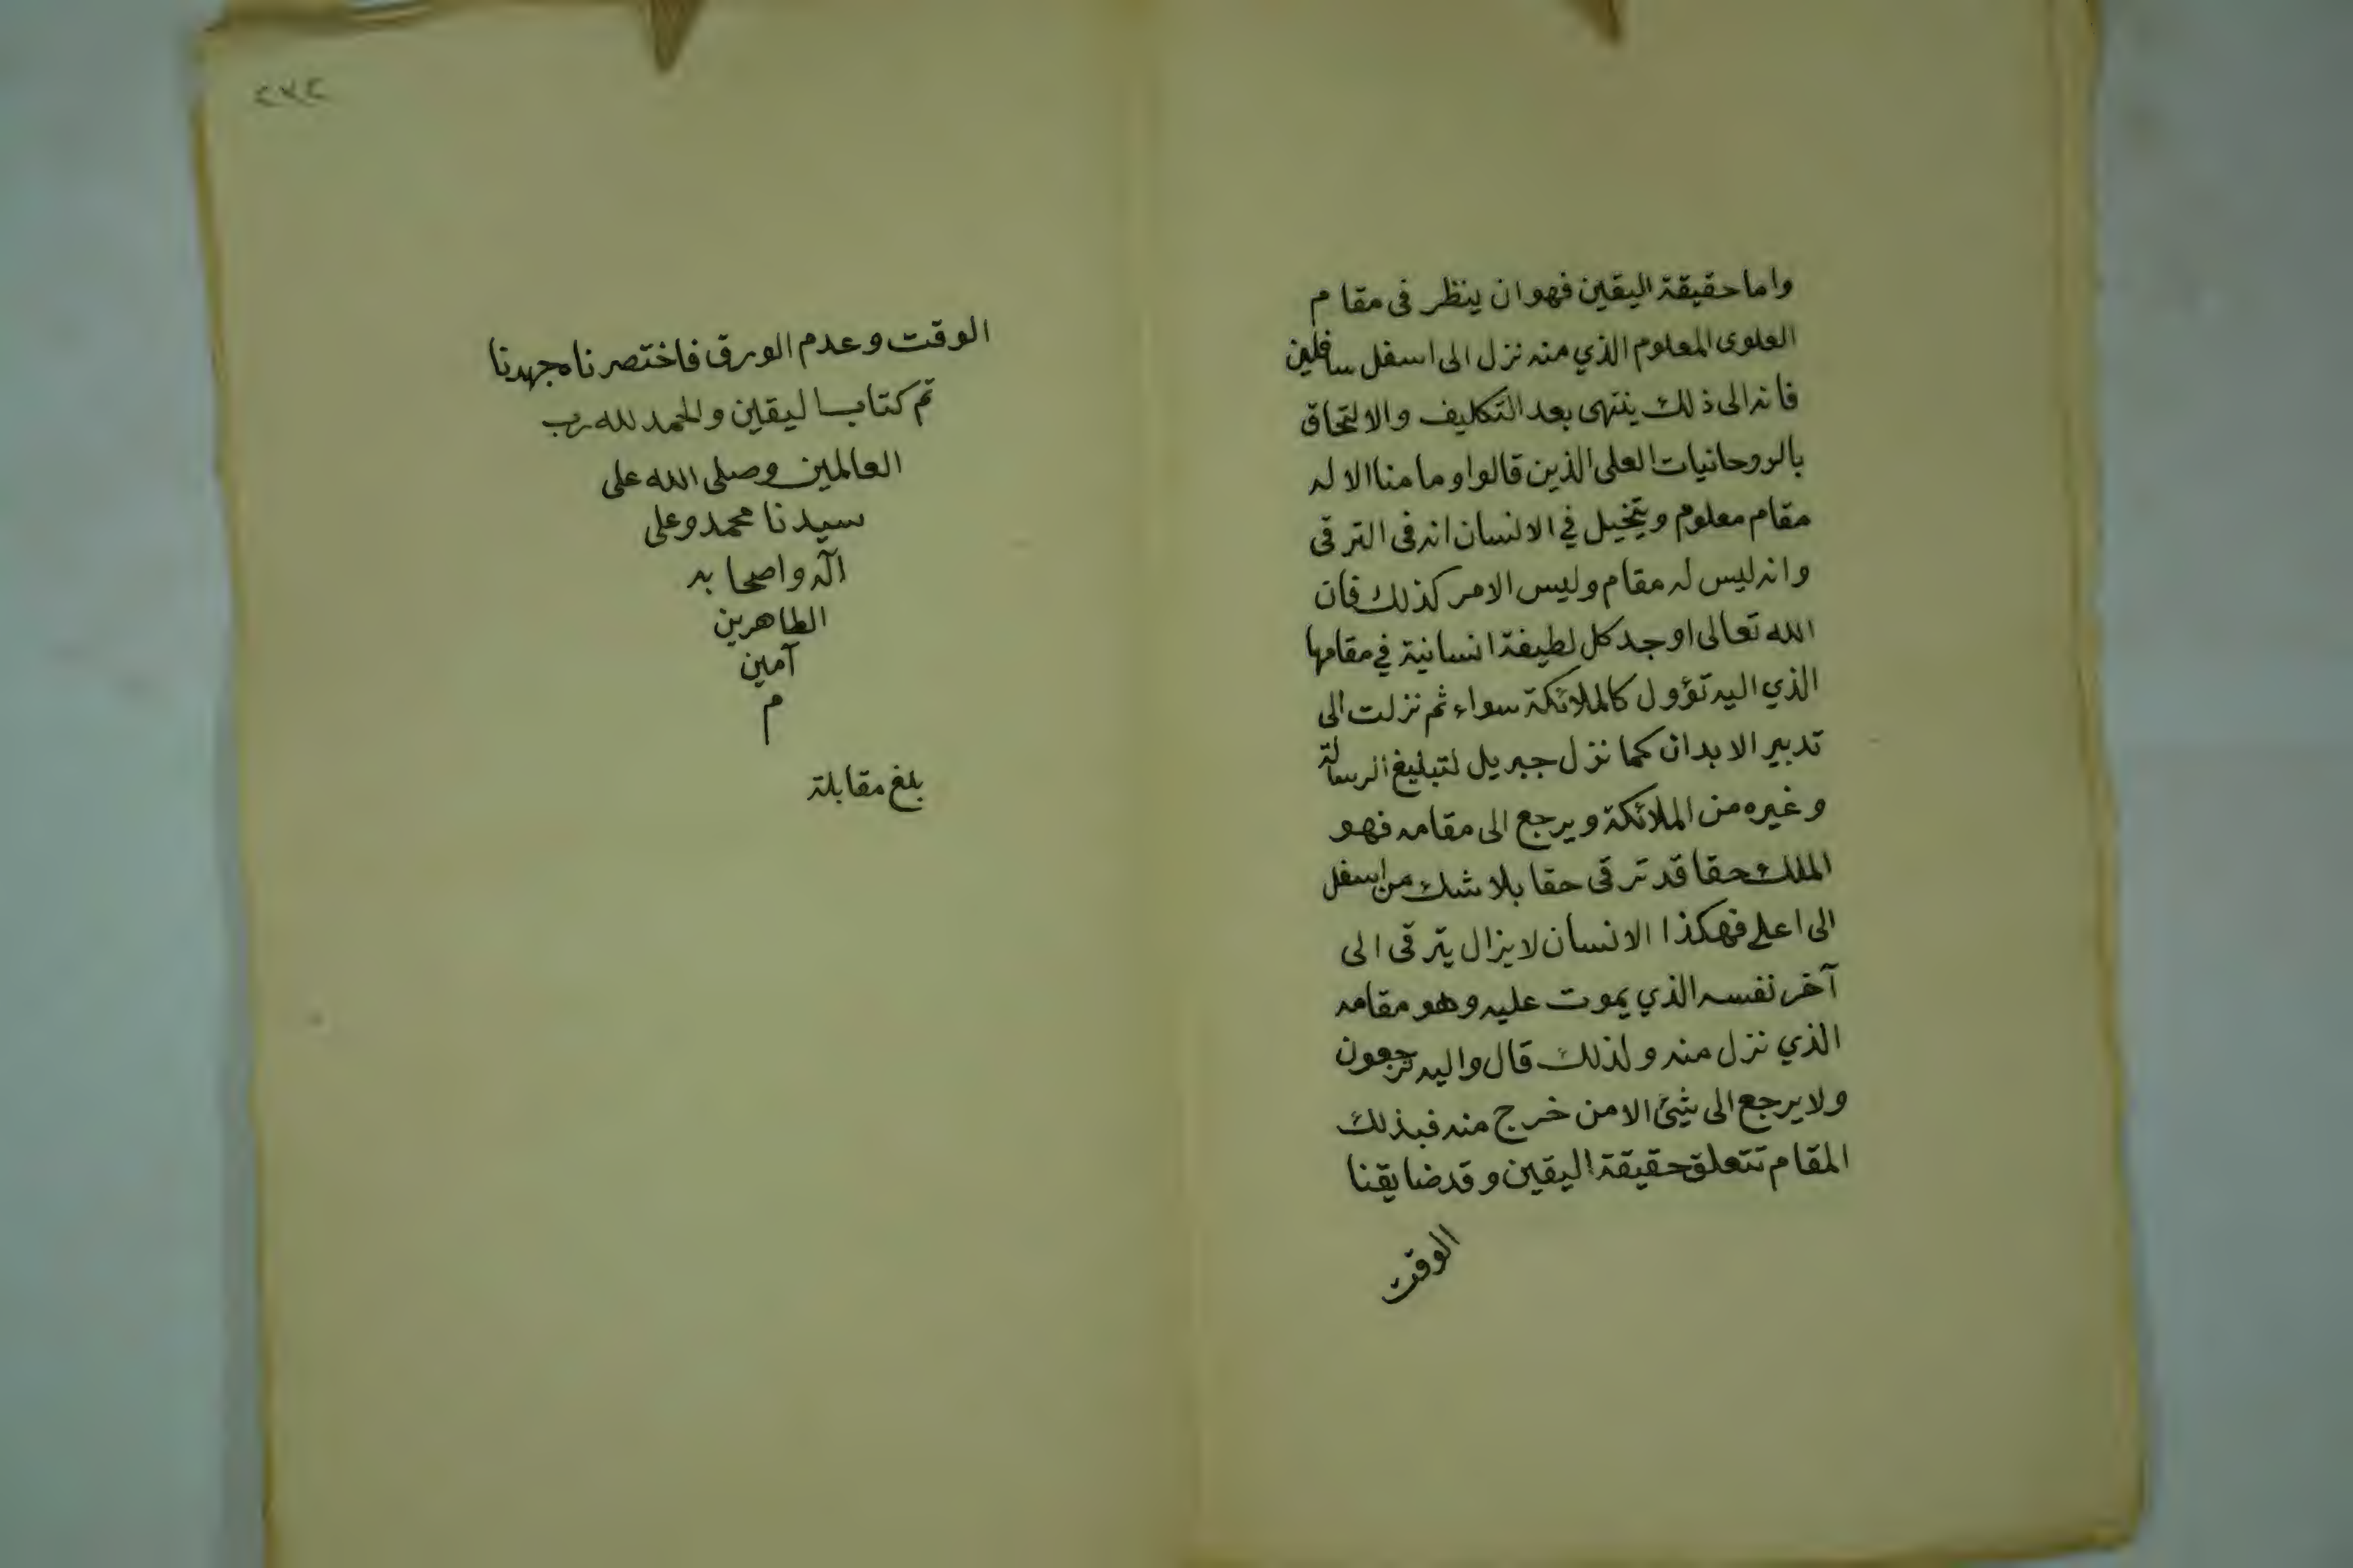 واما حقيقة اليقين فهو ان ينظر فى مقام
العلوى المعلوم الذي منه نزل الى اسفل سافلين
فانه الى ذلك ينتهى بعد التكليف والالتحاق
بالروحانيات العلى الذين قالوا وما منا الا له
مقام معلوم ويتخيل في الانسان انه فى الترقى
وانه ليس له مقام وليس الامر كذلك فان
الله تعالى اوجد كل لطيفة انسانية في مقامها
الذي اليه تؤول كالملائكة سواء ثم نزلت الى
تدبير الابدان كما نزل جبريل لتبليغ الرسالة
وغيره من الملائكة ويرجع الى مقامه فهو
الملك حقا قد ترقى حقا بلا شك من اسفل
الى اعلى فهكذا الانسان لا يزال يترقى الى
آخر نفسه الذي يموت عليه وهو مقامه
الذي نزل منه ولذلك قال واليه ترجعون
ولا يرجع الى شئ الا من خرج منه فبذلك
المقام تتعلق حقيقة اليقين وقد ضايقنا
الوقت
٢٧٤
الوقت وعدم الورق فاختصرنا جهدنا
تم كتاب اليقين والحمد لله رب
العالمين وصلى الله على
سيدنا محمد وعلى
آله واصحابه
الطاهرين
آمين
م
بلغ مقابلة